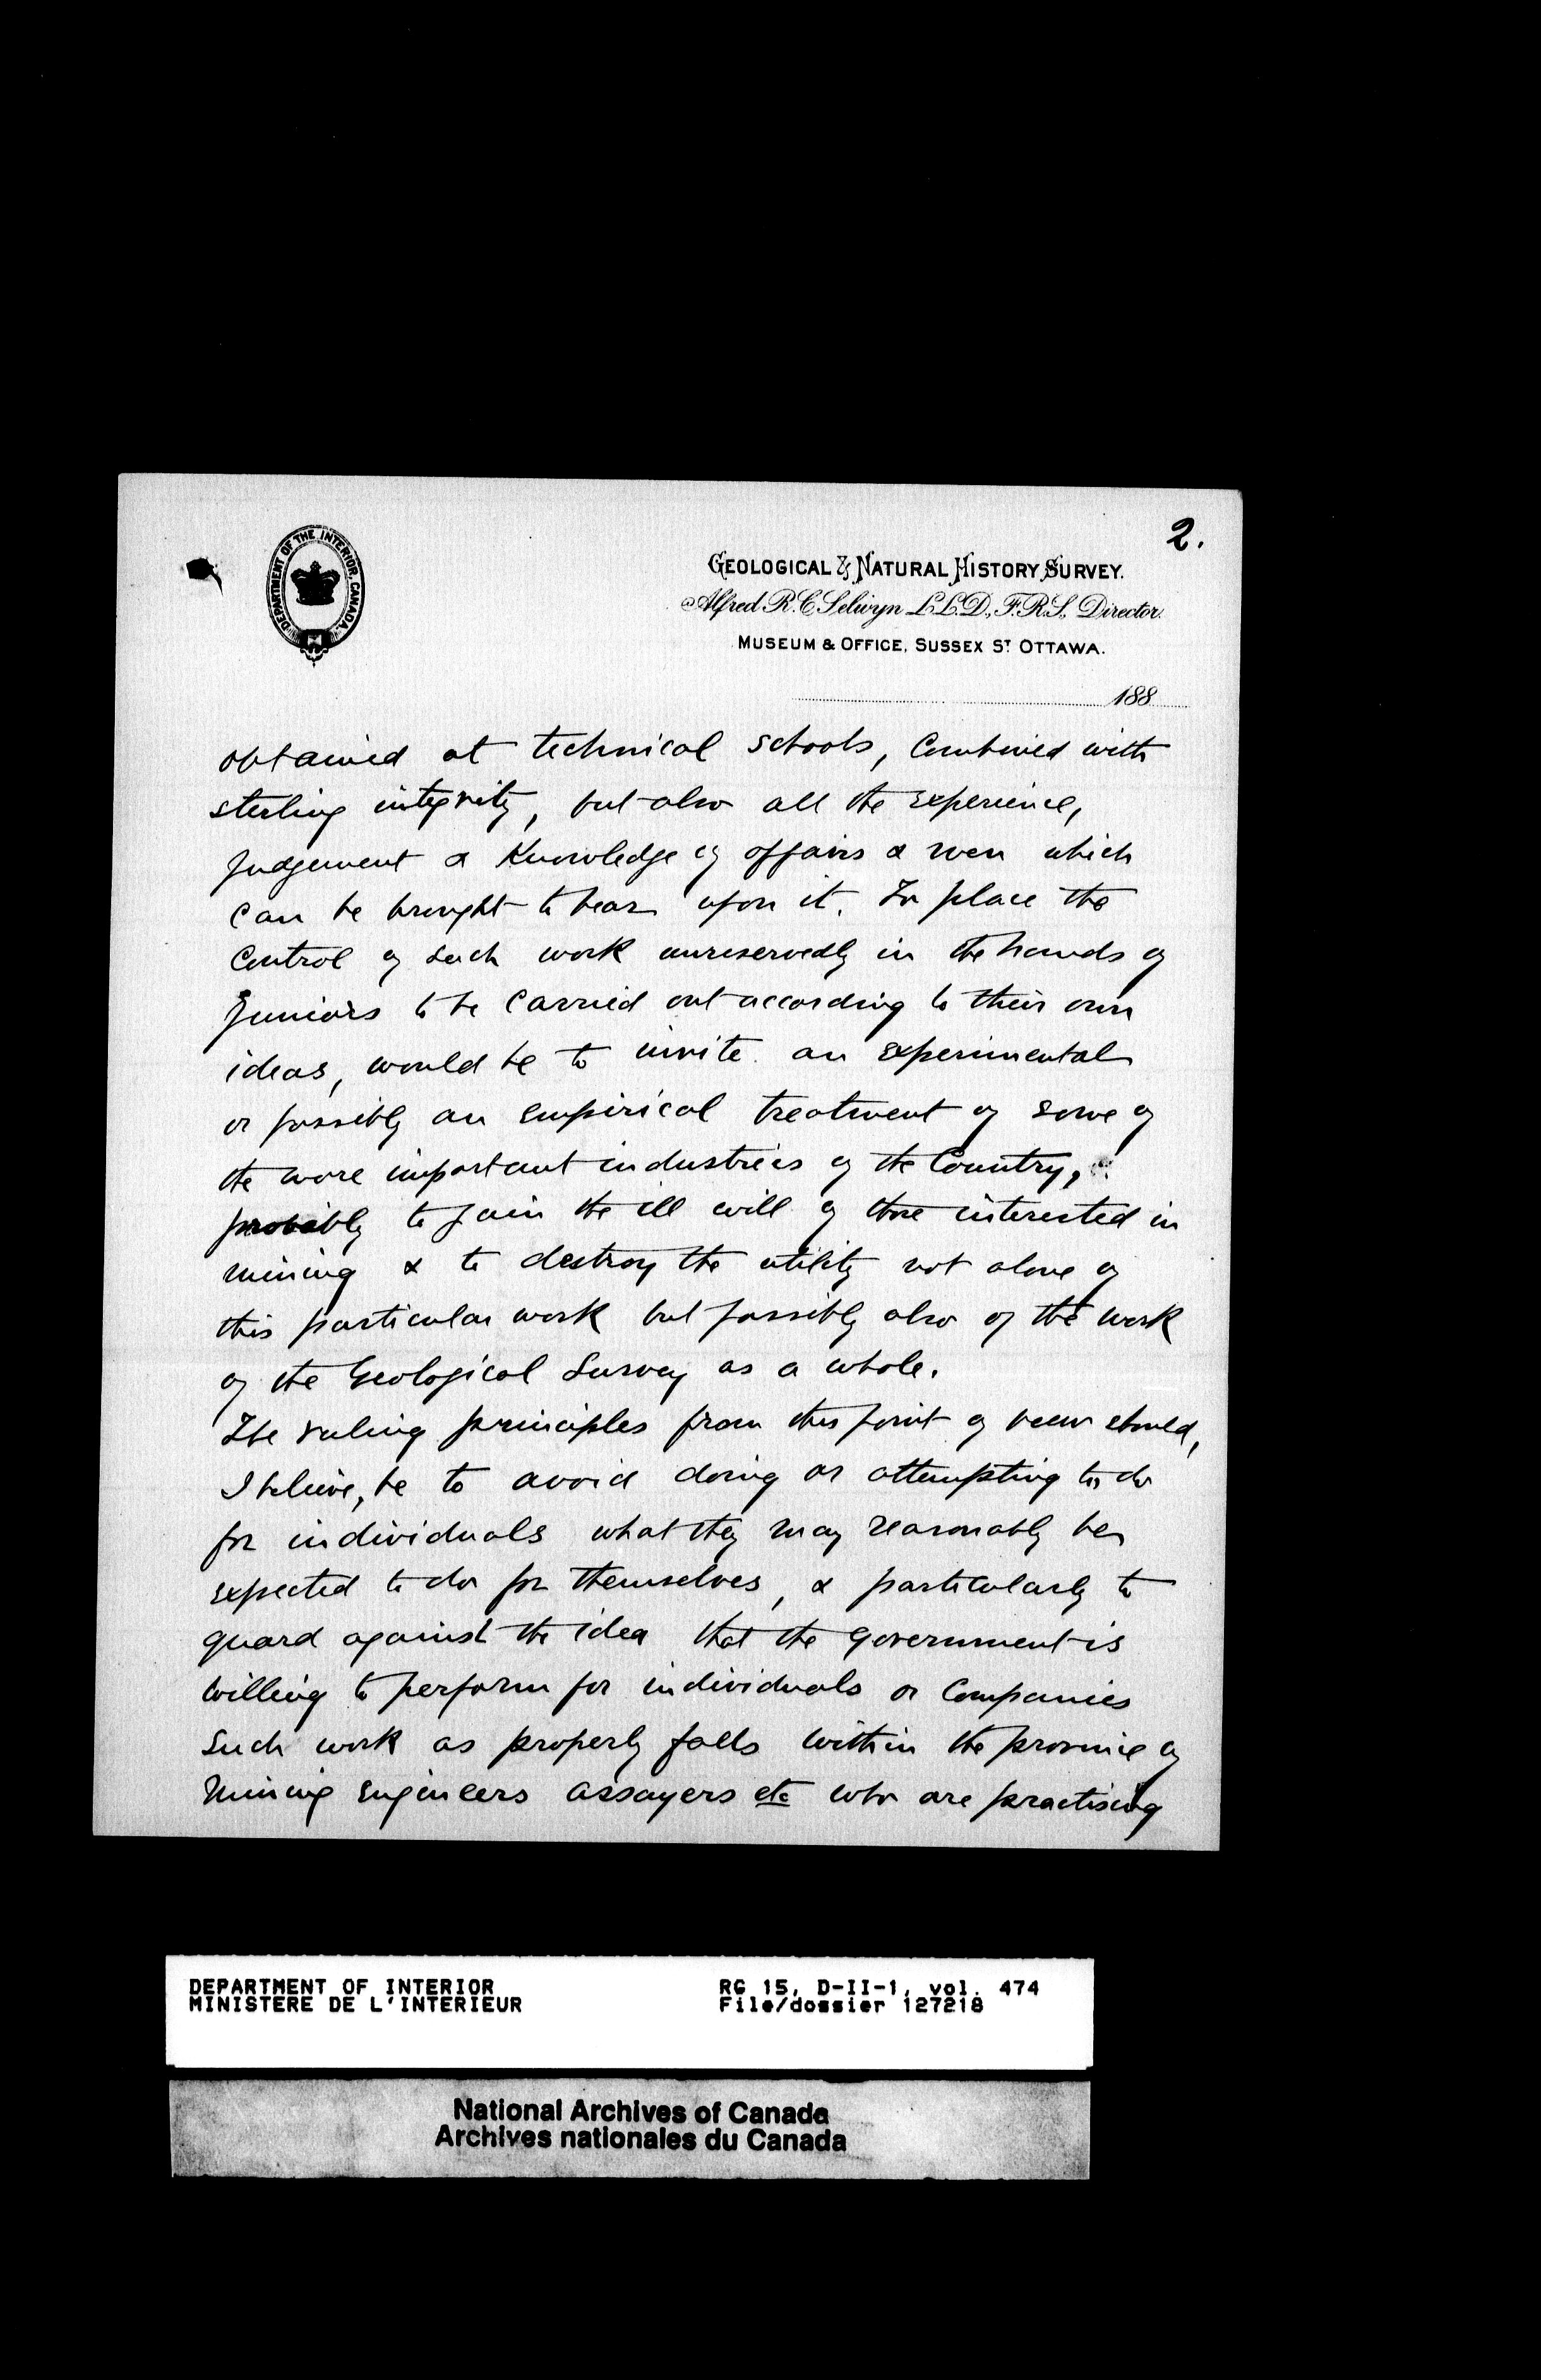 2.
DEPARTMENT OF THE INTERIOR, CANADA.
GEOLOGICAL & NATURAL HISTORY SURVEY.
Alfred R. C. Selwyn LL.D., F.R.S., Director.
MUSEUM & OFFICE, SUSSEX ST OTTAWA.
188
obtained at technical schools, combined with
sterling integrity, but also all the experience,
judgement & knowledge of affairs & men which
can be brought to bear upon it. To place the
control of such work unreservedly in the hands of
juniors to be carried out according to their own
ideas, would be to invite an experimental
or possibly an empirical treatment of some of
the more important industries of the Country,
probably to gain the ill will of those interested in
mining & to destroy the utility not alone of
this particular work but possibly also of the work
of the Geological Survey as a whole.
The ruling principles from this point of view should,
I believe, be to avoid doing or attempting to do
for individuals what they may reasonably be
expected to do for themselves, & particularly to
guard against the idea that the government is
willing to perform for individuals or Companies
such work as properly falls within the province of
Mining Engineers assayers etc who are practising
DEPARTMENT OF INTERIOR
MINISTERE DE L'INTERIEUR
RG 15, D-II-1, vol. 474
File/dossier 127218
National Archives of Canada
Archives nationales du Canada